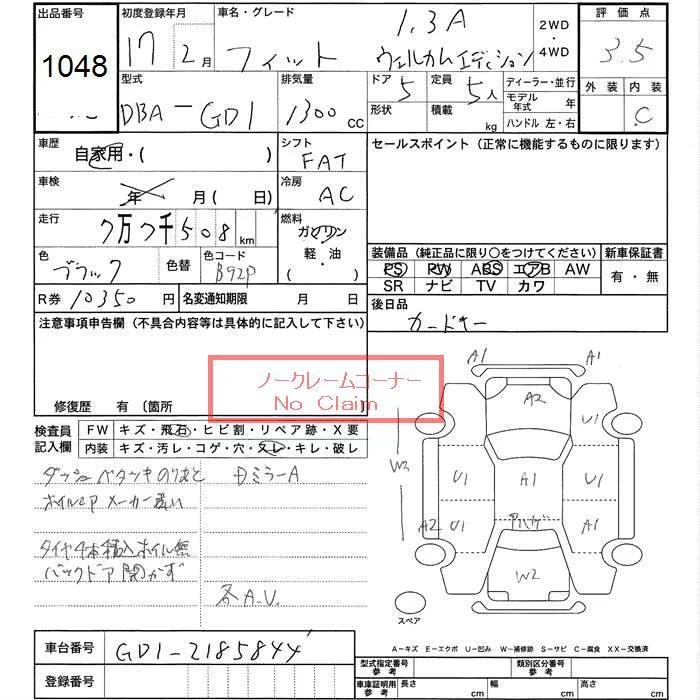 出品番号 初度登録年月 車名・グレード 評価点
1048 17 2月 フィット 1.3A ウェルカムエディション 2WD・4WD 3.5
型式 排気量 ドア 定員 ディーラー・並行 外装 内装
DBA-GD1 1300cc 5 5人 モデル年式 年 C
形状 積載 kg ハンドル 左・右
車歴 自家用・( ) シフト FAT セールスポイント (正常に機能するものに限ります)
車検 年 月( 日) 冷房 AC
走行 7万7千508km 燃料 ガソリン 軽・油 ( )
色 ブラック 色替 色コード B92P
装備品 (純正品に限り○をつけてください) 新車保証書
PS PW ABS エアB AW 有・無
SR ナビ TV カワ
R券 10350円 名変通知期限 月 日 後日品
カードキー
注意事項申告欄 (不具合内容等は具体的に記入して下さい)
ノークレームコーナー
No Claim
修復歴 有 〔箇所 〕
検査員記入欄 FW キズ・飛石・ヒビ割・リペア跡・X要
内装 キズ・汚レ・コゲ・穴・スレ・キレ・破レ
ダッシュペタンキのりあと DミラーA
ホイルCPメーカー違い
タイヤ4本積込ホイル無
バックドア開かず
各A.U.
A1 A1
A2 U1
W3 U1 A1 U1
A2 U1 アハゲ A1
W2
スペア
A-キズ E-エクボ U-凹み W-補修跡 S-サビ C-腐食 XX-交換済
車台番号 GD1-2185844
登録番号
型式指定番号 参考 類別区分番号 参考
車庫証明用 参考 長さ cm 幅 cm 高さ cm